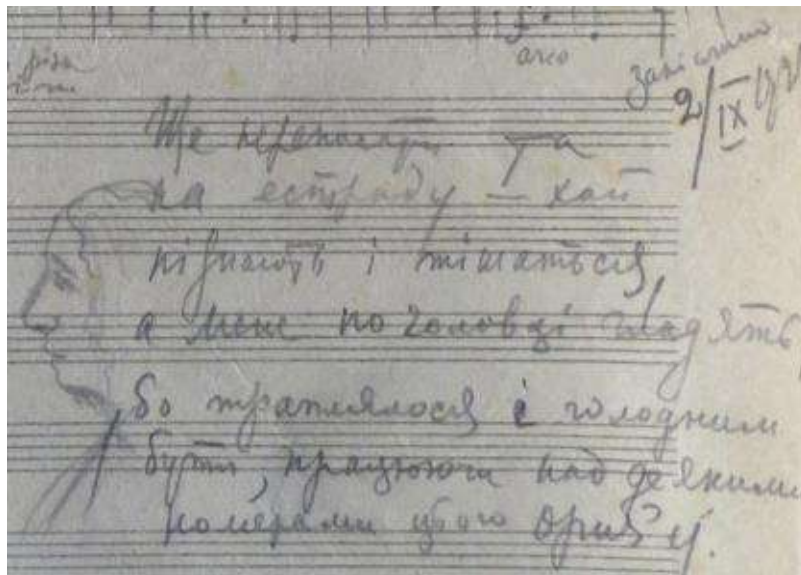 arco
Закінчено
2/IX
Ще переписати та
на естраду — хай
пізнають і тішаться,
а мене по головці гладять,
бо траплялося і голодним
бути, працюючи над деякими
номерами цього opus'у.